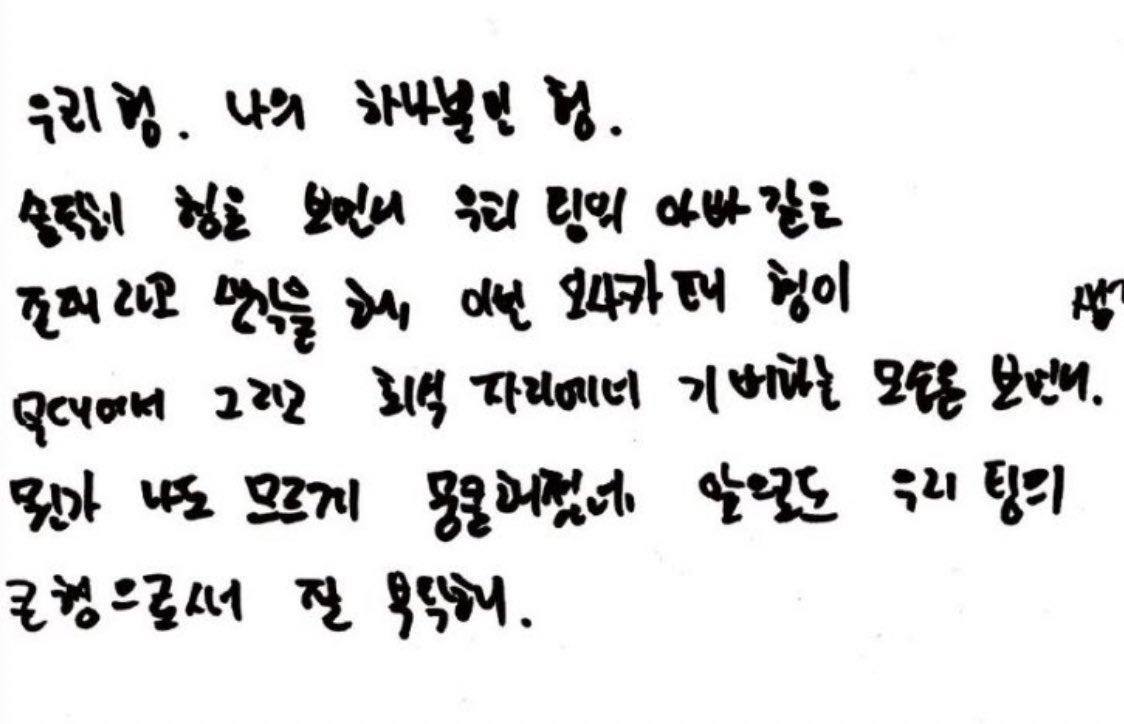 우리형. 나의 하나뿐인 형.
솔직히 형을 보면 우리 팀의 아빠 같은
존재라고 생각을 해, 이번 오사카 때 형이
무대에서 그리고 회식 자리에서 기뻐하는 모습을 보면서.
뭔가 나도 모르게 뭉클해졌네, 앞으로도 우리 팀의
큰형으로서 잘 부탁해.